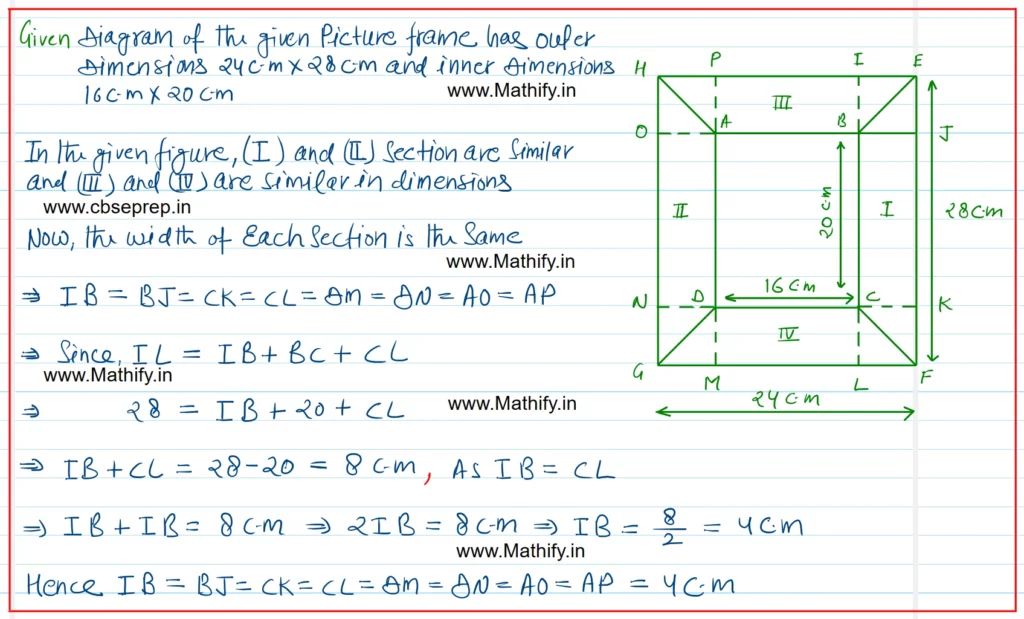 Given Diagram of the given Picture frame has outer
Dimensions 24 c·m × 28 c·m and inner Dimensions
16 c·m × 20 c·m
www.Mathify.in
In the given figure, (I) and (II) Section are Similar
and (III) and (IV) are Similar in dimensions
www.cbseprep.in
Now, the width of Each Section is the Same
www.Mathify.in
⇒ IB = BJ = CK = CL = DM = DN = AO = AP
⇒ Since, IL = IB + BC + CL
www.Mathify.in
⇒ 28 = IB + 20 + CL
www.Mathify.in
⇒ IB + CL = 28 - 20 = 8 c·m, As IB = CL
⇒ IB + IB = 8 c·m ⇒ 2IB = 8 c·m ⇒ IB = 8/2 = 4 c·m
www.Mathify.in
Hence IB = BJ = CK = CL = DM = DN = AO = AP = 4 c·m
H P I E
III
O A B J
II 20 c·m I 28 c·m
N D 16 c·m C K
IV
G M L F
24 c·m